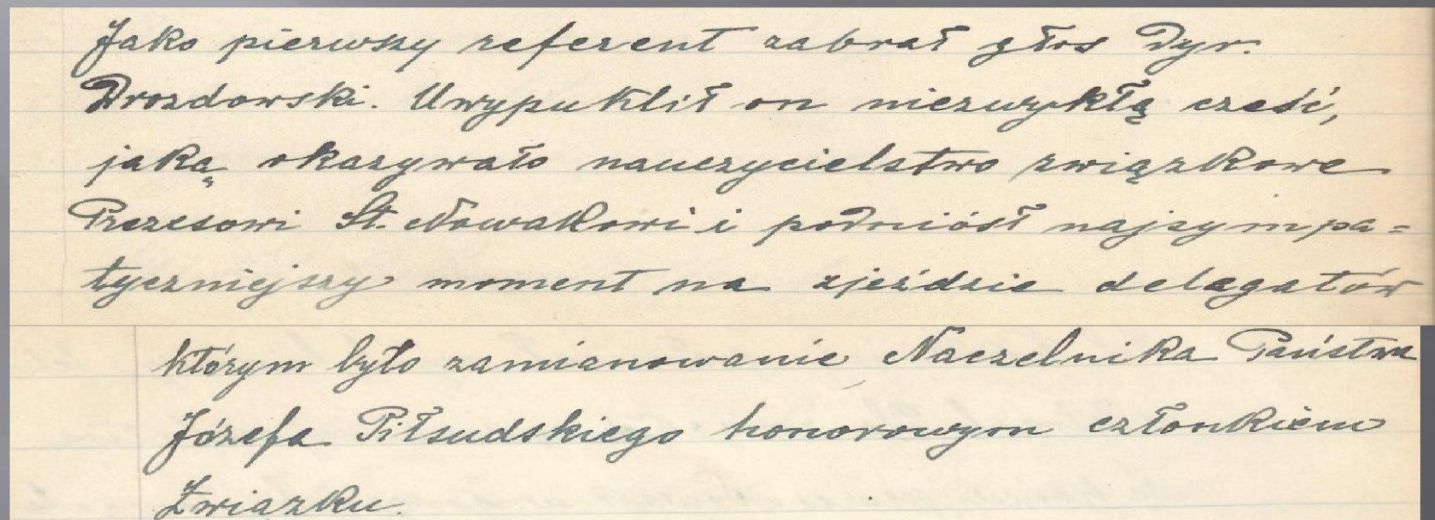 Jako pierwszy referent zabrał głos Dyr.
Drozdowski. Uwypuklił on niezwykłą cześć,
jaką okazywało nauczycielstwo związkowe
Prezesowi St. Nowakowi i podniósł najsympa=
tyczniejszy moment na zjeździe delegatów
którym było zamianowanie Naczelnika Państwa
Józefa Piłsudskiego honorowym członkiem
Związku.